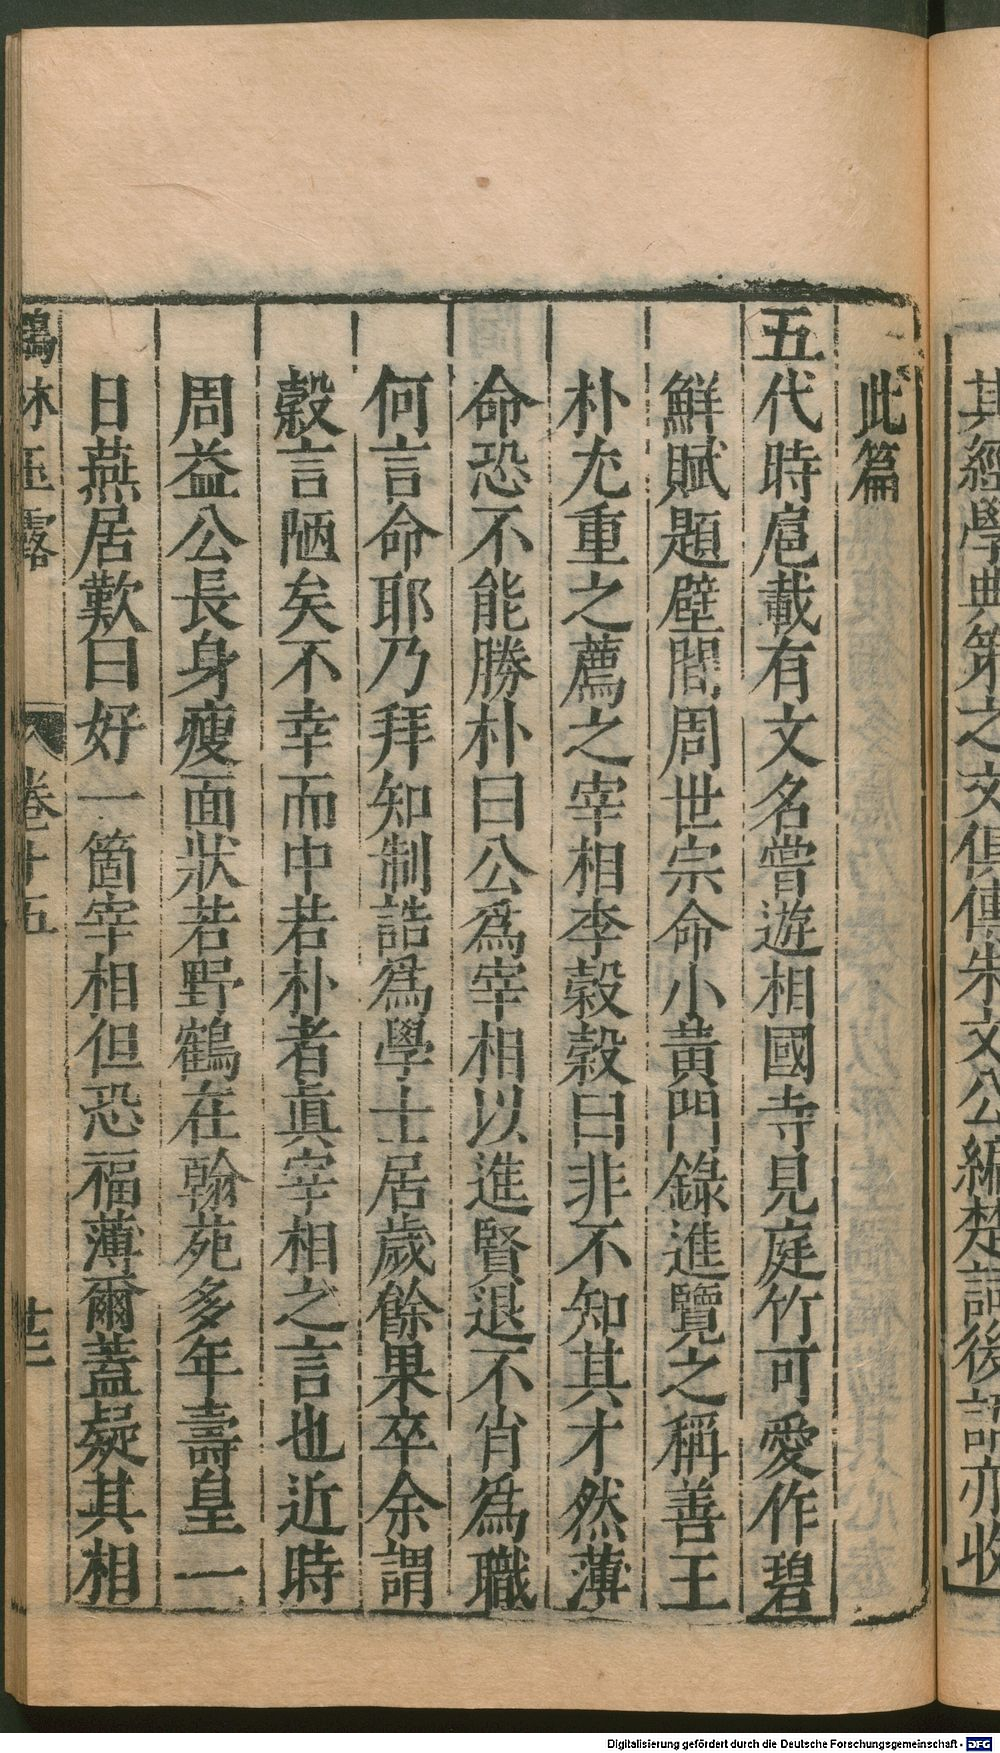 其經學典策之文俱傳朱文公編楚詞後語亦收
此篇
五代時扈載有文名嘗遊相國寺見庭竹可愛作碧
鮮賦題壁間周世宗命小黃門錄進覽之稱善王
朴尤重之薦之宰相李穀穀曰非不知其才然薄
命恐不能勝朴曰公爲宰相以進賢退不肖爲職
何言命耶乃拜知制誥爲學士居歲餘果卒余謂
穀言陋矣不幸而中若朴者眞宰相之言也近時
周益公長身瘦面狀若野鶴在翰苑多年壽皇一
日燕居歎曰好一箇宰相但恐福薄爾蓋疑其相
鶴林玉露 卷十五 廿二
Digitalisierung gefördert durch die Deutsche Forschungsgemeinschaft - DFG